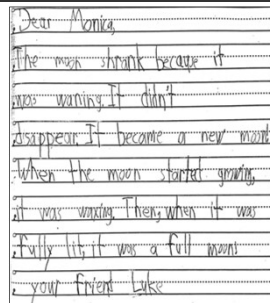 Dear Monica,
The moon shrank because it
was waning. It didn't
disappear. It became a new moon!
When the moon started growing,
it was waxing. Then, when it was
fully lit, it was a full moon!
your friend Luke